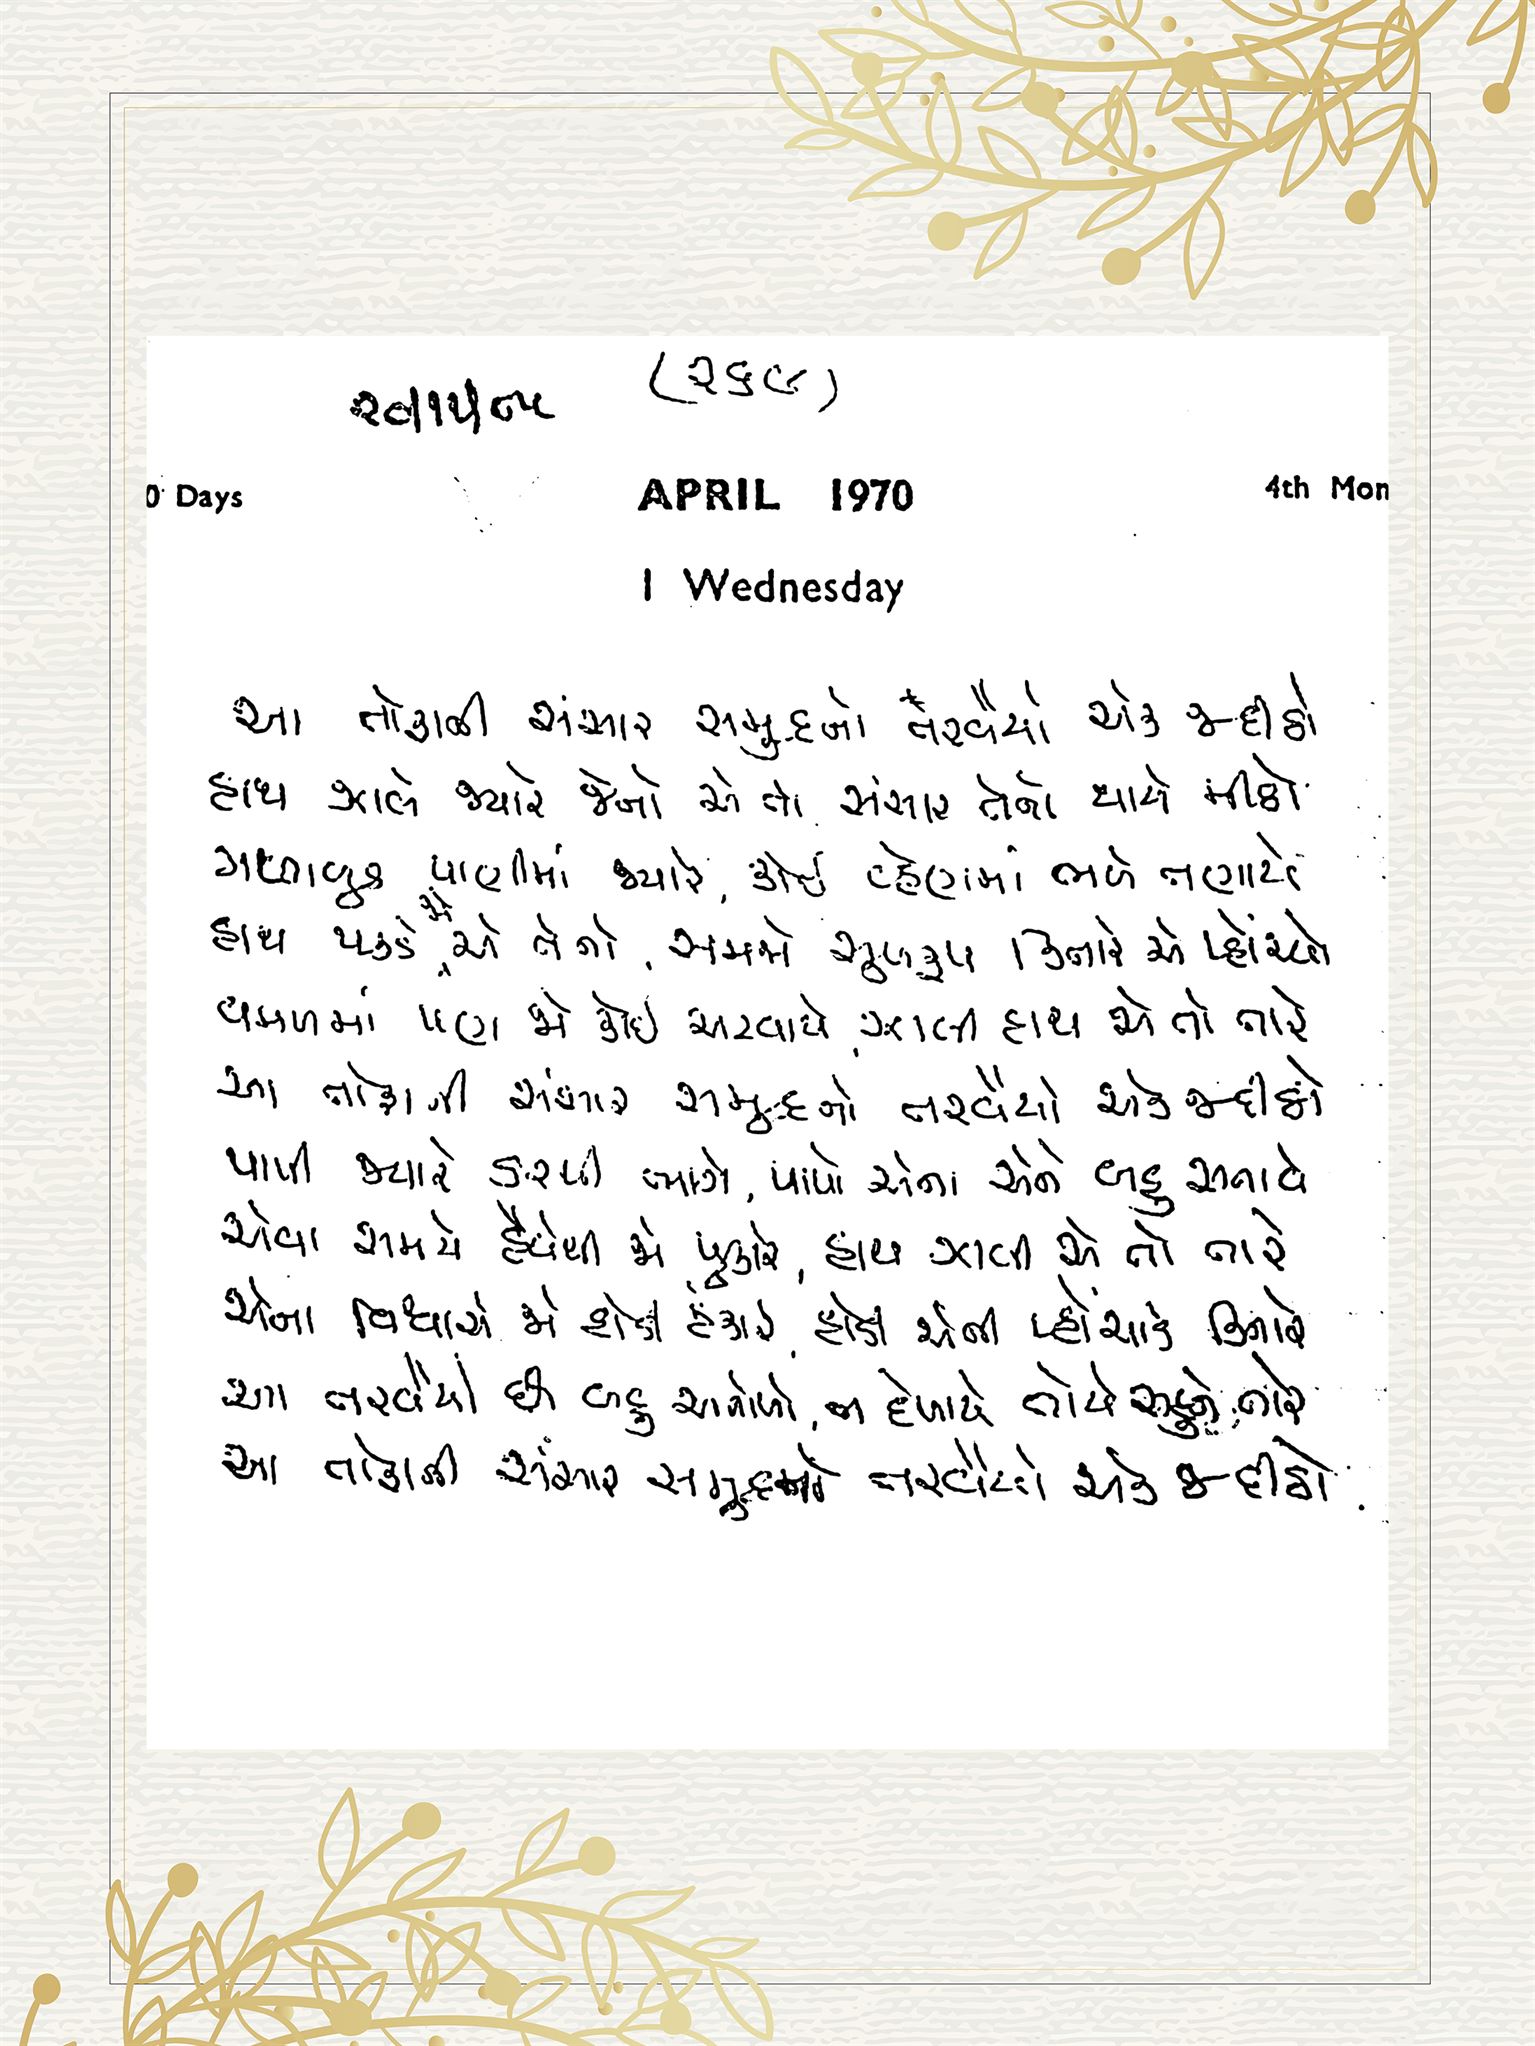 ૨૮/૧૫/૮૫ (૨૬૯)
0 Days APRIL 1970 4th Mon
1 Wednesday
આ તોફાની સંસાર સમુદ્રનો તરવૈયો એક જ દીઠો
હાથ ઝાલે જ્યારે જેનો એ તો સંસાર તેનો થાયે મીઠો
ગળાબુડ પાણીમાં જ્યારે, કોઈ વ્હેણમાં ભળે તણાયે
હાથ પકડે જો એ તેનો, સમજો સુખરૂપ કિનારે એ પ્હોંચે
વમળમાં પણ જો કોઈ અટવાયે, ઝાલી હાથ એ તો તારે
આ તોફાની સંસાર સમુદ્રનો તરવૈયો એક જ દીઠો
પાપી જ્યારે ડરથી ભાગે, પાપો એના એને બહુ સતાવે
એવા સમયે હૈયેથી જો પુકારે, હાથ ઝાલી એ તો તારે
એના વિશ્વાસે જો હોડી હંકારે, હોડી એની પ્હોંચાડે કિનારે
આ તરવૈયો છે બહુ અનોખો, ન દેખાયે તોયે સહુને તારે
આ તોફાની સંસાર સમુદ્રનો તરવૈયો એક જ દીઠો.